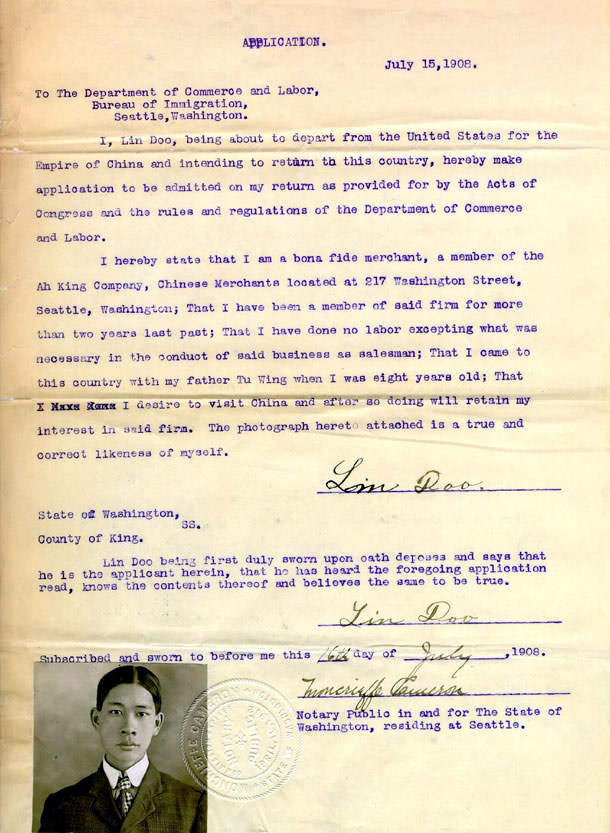 APPLICATION.
July 15,1908.
To The Department of Commerce and Labor,
Bureau of Immigration,
Seattle,Washington.
I, Lin Doo, being about to depart from the United States for the
Empire of China and intending to return th this country, hereby make
application to be admitted on my return as provided for by the Acts of
Congress and the rules and regulations of the Department of Commerce
and Labor.
I hereby state that I am a bona fide merchant, a member of the
Ah King Company, Chinese Merchants located at 217 Washington Street,
Seattle, Washington; That I have been a member of said firm for more
than two years last past; That I have done no labor excepting what was
necessary in the conduct of said business as salesman; That I came to
this country with my father Tu Wing when I was eight years old; That
I desire to visit China and after so doing will retain my
interest in said firm. The photograph hereto attached is a true and
correct likeness of myself.
Lin Doo.
State of Washington,
SS.
County of King.
Lin Doo being first duly sworn upon oath deposes and says that
he is the applicant herein, that he has heard the foregoing application
read, knows the contents thereof and believes the same to be true.
Lin Doo
Subscribed and sworn to before me this 16th day of July ,1908.
Moncrieffe Cameron
Notary Public in and for The State of
Washington, residing at Seattle.